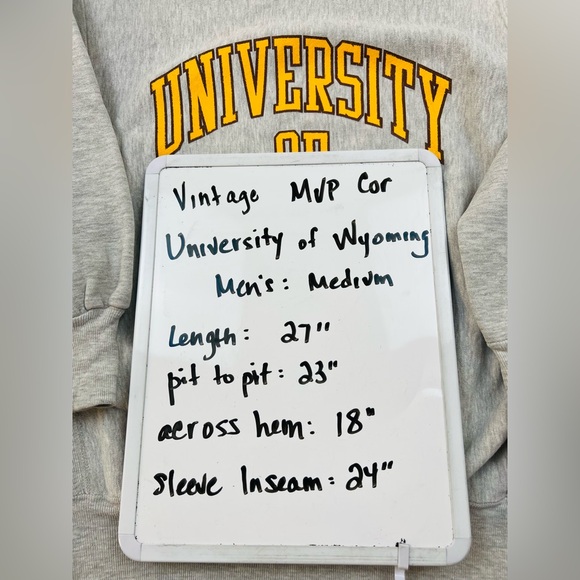 UNIVERSITY
OF
Vintage MVP Cor
University of Wyoming
Men's: Medium
Length: 27"
pit to pit: 23"
across hem: 18"
Sleeve Inseam: 24"